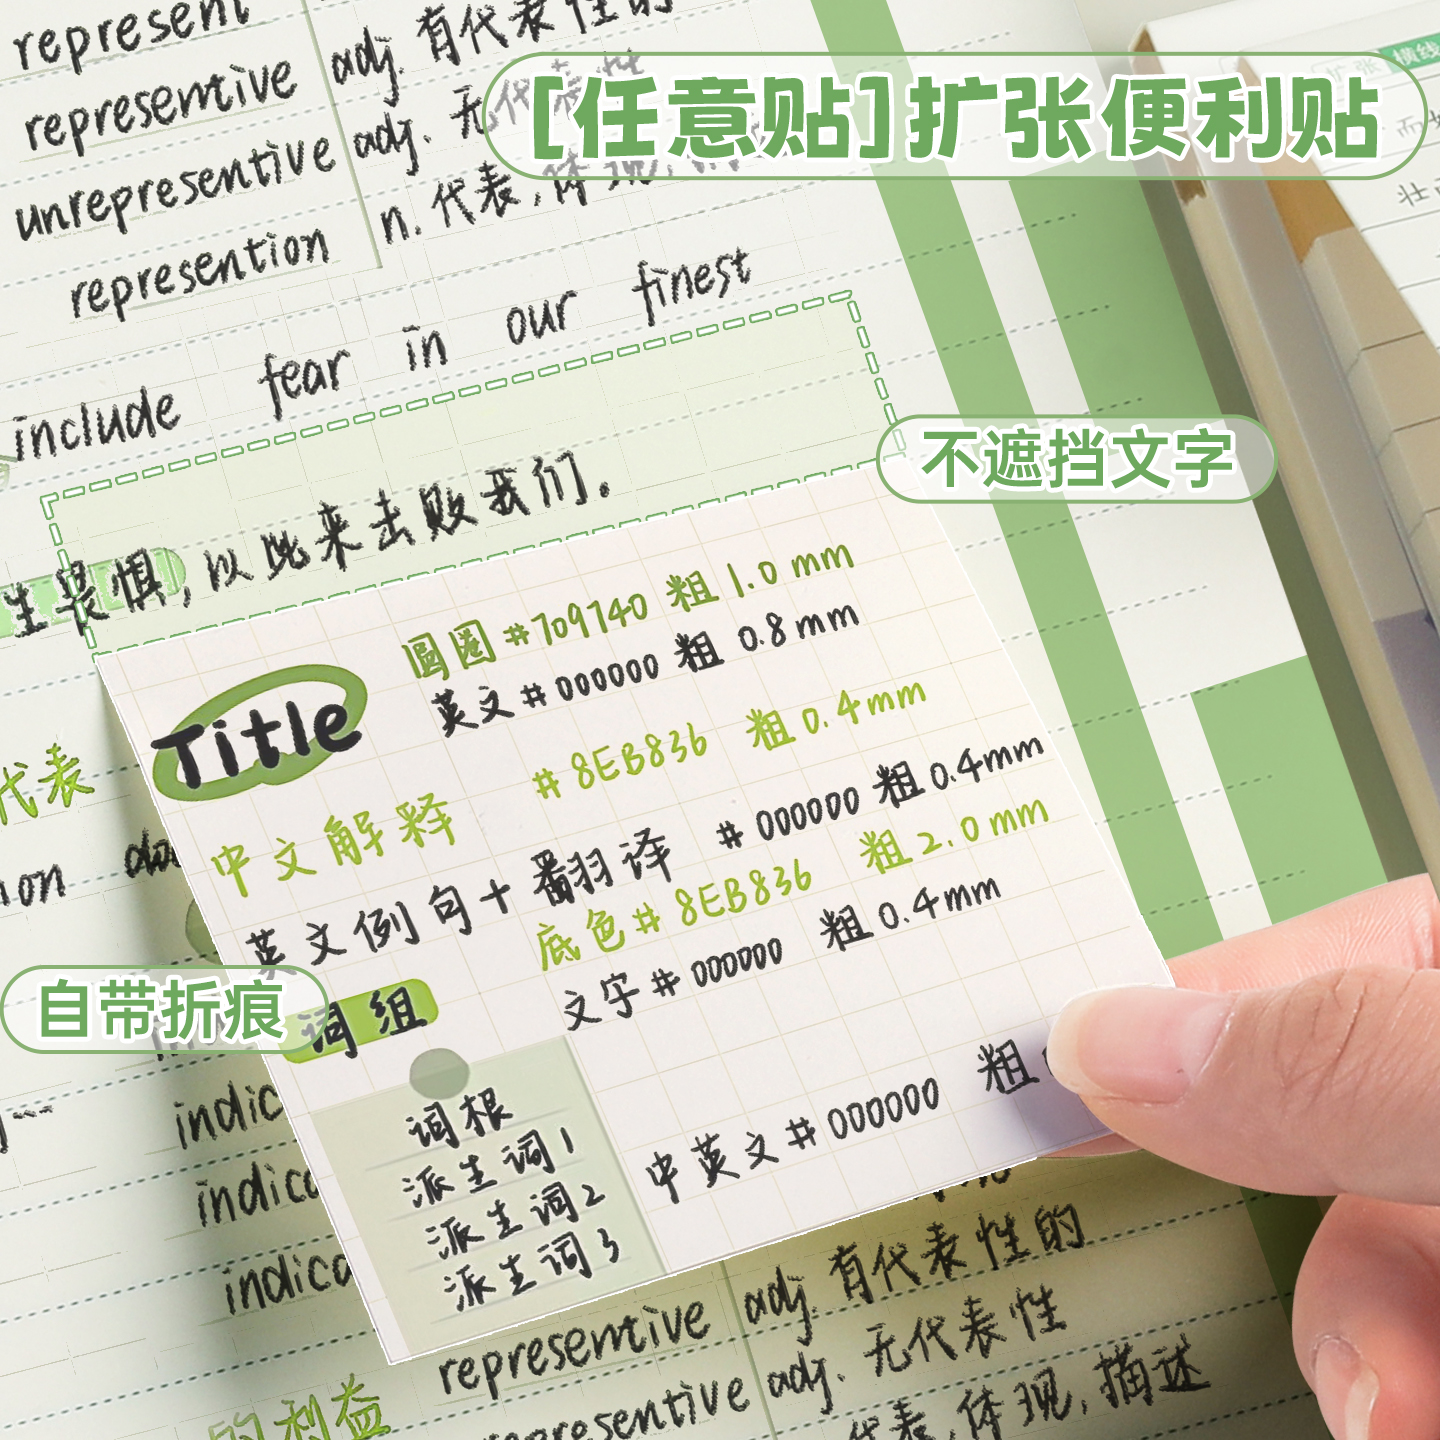 represent
representive adj. 有代表性的
unrepresentive adj. 无代表性
represention n. 代表,体现,
[任意贴]扩张便利贴
扩张 横线
include fear in our finest
不遮挡文字
生畏惧,以此来击败我们。
圆圈 #709740 粗 1.0 mm
英文 # 000000 粗 0.8 mm
Title
# 8EB836 粗 0.4 mm
中文解释
英文例句+翻译 # 000000 粗 0.4 mm
底色 # 8EB836 粗 2.0 mm
词组
文字 # 000000 粗 0.4 mm
代表
ion
自带折痕
词根
派生词1
派生词2
派生词3
中英文 # 000000 粗
indic
indica
indica
representive adj. 有代表性的
resentive adj. 无代表性
代表,体现,描述
的利益